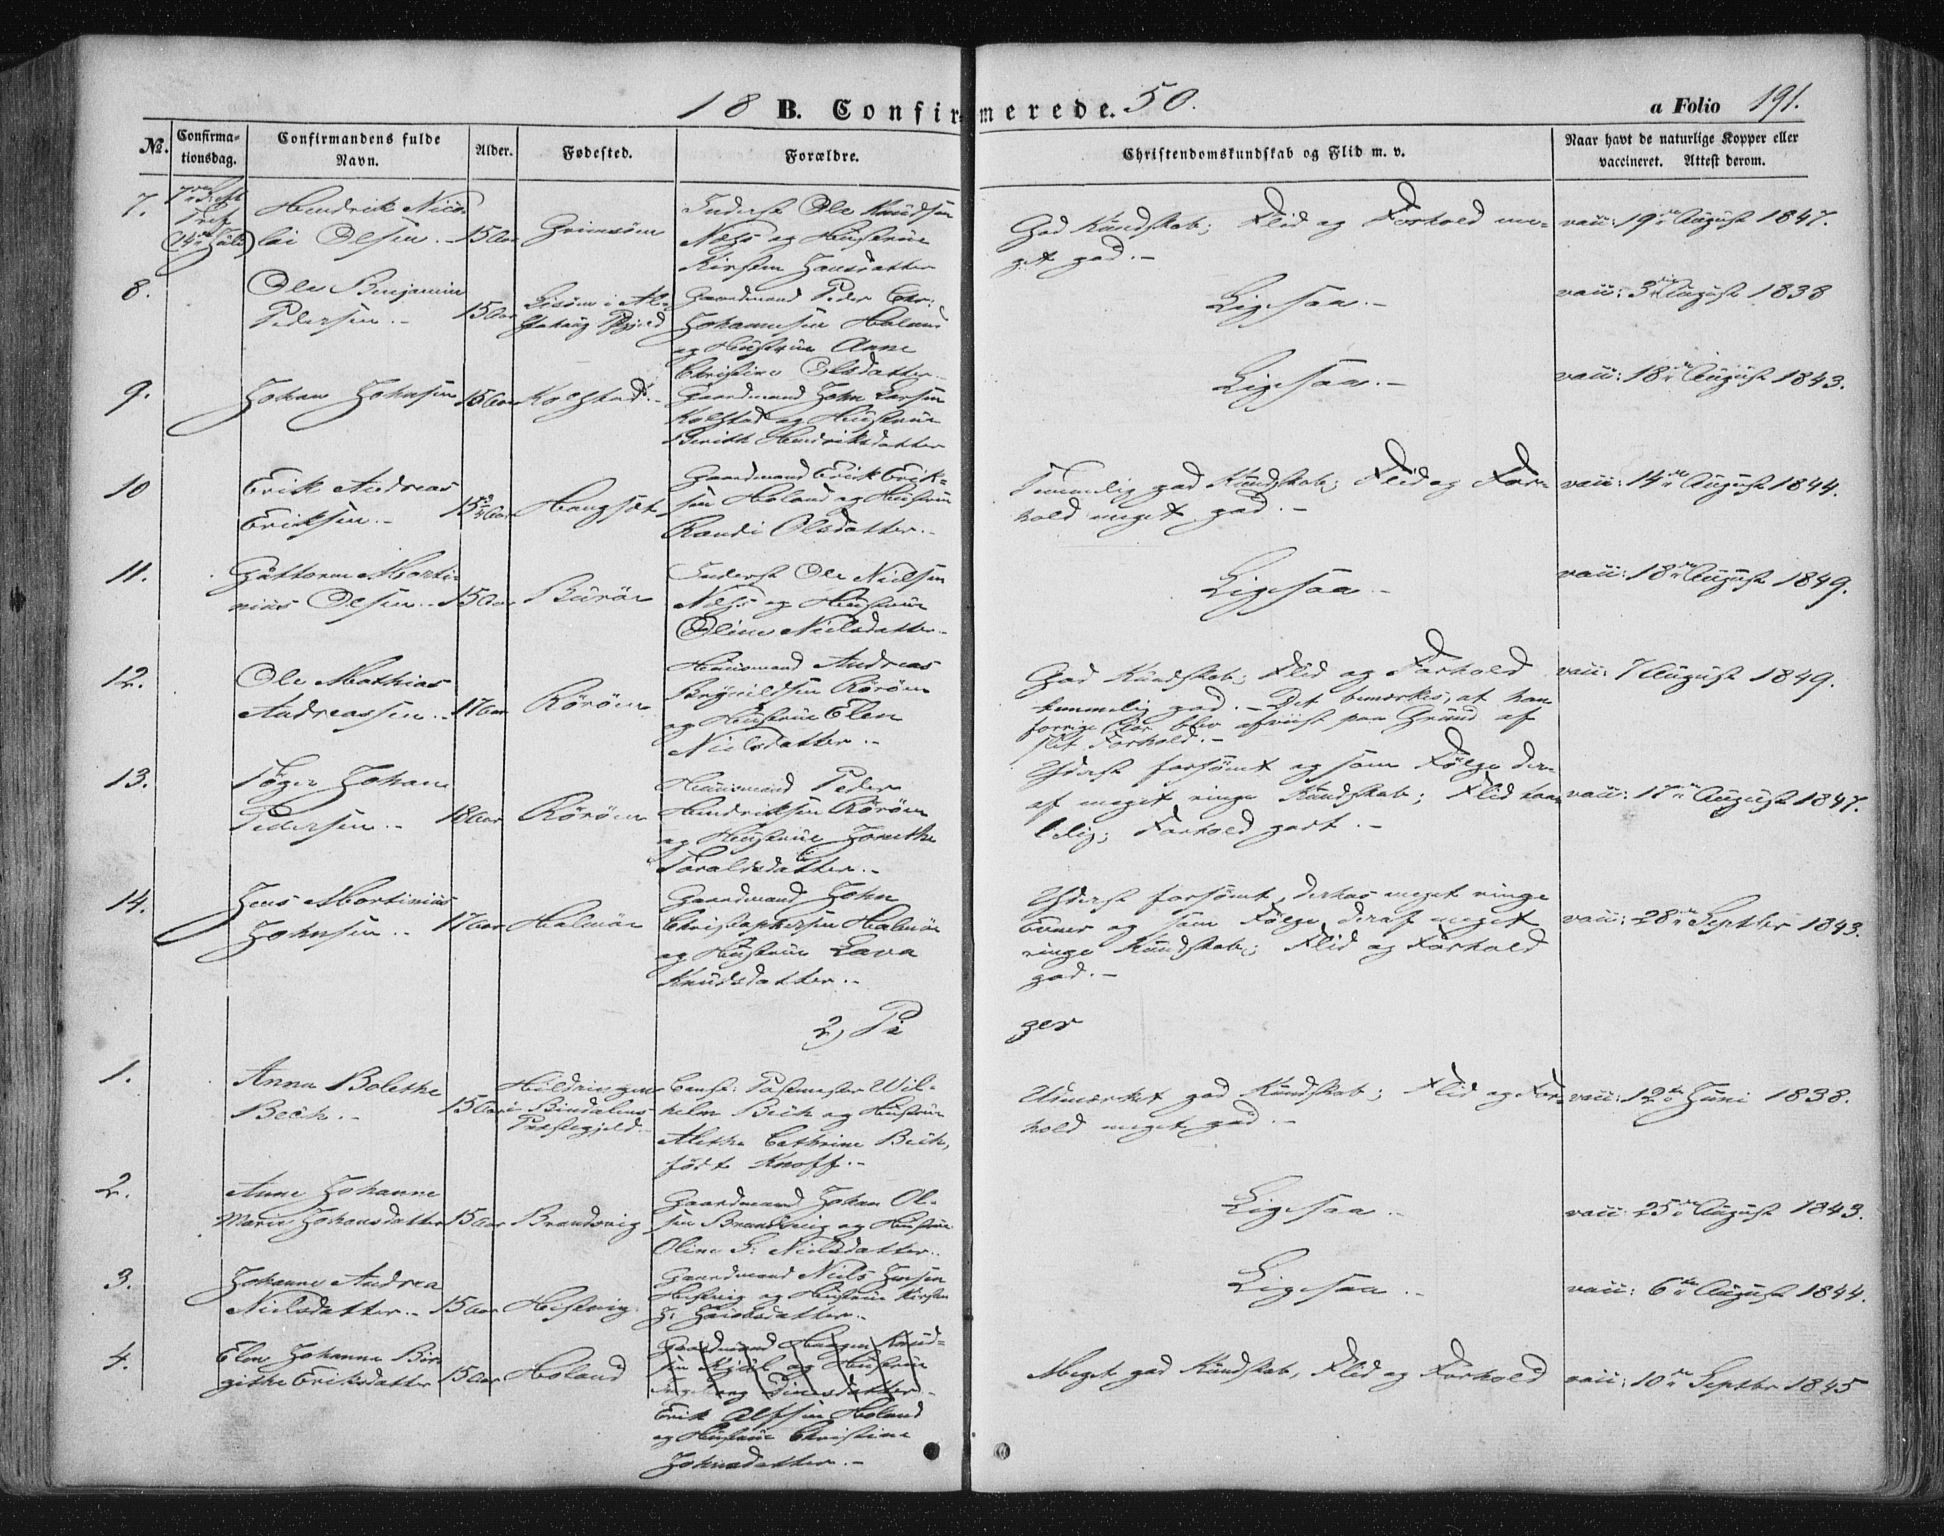 18 B. Confirmerede. 50.
a Folio 191.
No. Confirmationsdag. Confirmandens fulde Navn. Alder. Fødested. Forældre. Christendomskundskab og Flid m. v. Naar havt de naturlige Kopper eller vaccineret. Attest derom.
7.
Hendrik Nico
lai Olsen. 15 Aar
Inderst Ole Knudsen
Næss og Hustrue
Kirsten Hansdatter
God Kundskab; Flid og Forhold me-
get god.
vacc: 19de August 1847.
8.
Ole Benjamin
Pedersen. 15 Aar
Gaardmand Peder Chr:
Johannesen Holand
og Hustrue Anne
Christine Olsdatter.
Ligesaa.
vacc: 3die August 1838
9.
Johan Johnsen 15 Aar Kolstad.
Gaardmand John Larsen
Kolstad og Hustrue
Berith Hendriksdatter
Ligesaa.
vacc: 18de August 1843.
10
Erik Andreas
Eriksen. Hongset
Gaardmand Erik Erik-
sen Holand og Hustrue
Randi Olsdatter.
Temmelig god Kundskab; Flid og For-
hold meget god.
vacc: 14de August 1844.
11.
Guttorm Marti-
nius Olsen. 15 Aar Burøe
Inderst Ole Nielsen
Næss og Hustrue
Oline Nielsdatter.
Ligesaa.
vacc: 18de August 1849.
12.
Ole Mathias
Andreassen. 17 Aar Rörøen
Huusmand Andreas
Rörøen
og Hustrue Elen
Nielsdatter.
God Kundskab; Flid og Forhold
temmelig god. Det bemærkes, at han
forrige Aar blev afviist paa Grund af
slet Forhold.
vacc: 7 August 1849.
13.
Johan
Pedersen. 18 Aar Rörøen
Huusmand Peder
Hendriksen Rörøen
og Hustrue Jonethe
Toraldsdatter.
Yderst forsömt og som Følge der-
af meget ringe Kundskab; Flid taa-
lelig; Forhold godt.
vacc: 17de August 1847.
14.
Jens Martinius
Johnsen. 17 Aar Halmøe
Gaardmand John
Christophersen Halmøe
og Hustrue Lava
Knudsdatter.
Yderst forsömt, derhos meget ringe
Evner og som Følge deraf meget
ringe Kundskab; Flid og Forhold
god.
vacc: 28de Septber 1843.
2) Pi
ger
1.
Anna Bolethe
Beck. 15 Aar i Bindalens
Præstegjeld.
Const: Postmester Wil-
helm Beck og Hustrue
Alethe Cathrine Beck,
født Knoff.
Udmærket god Kundskab; Flid og For-
hold meget god.
vacc: 12te Juni 1838.
2.
Anne Johanne
Marie Johansdatter 15 Aar Brandsvig
Gaardmand Johan Ol-
sen Brandsvig og Hustrue
Oline S: Nielsdatter.
Ligesaa.
vacc: 25de August 1843.
3.
Johanne Andrea
Nielsdatter. 15 Aar Hestvig.
Gaardmand Niels Jensen
Hestvig og Hustrue Kirsten
J: Jacobsdatter.
Ligesaa.
vacc: 6te August 1844.
4.
Elen Johanna Bir-
githe Eriksdatter 15 Aar Holand
Erik Alfsen Holand
og Hustrue Christine
Johnsdatter.
Meget god Kundskab, Flid og Forhold
vacc: 10de Septbr 1845